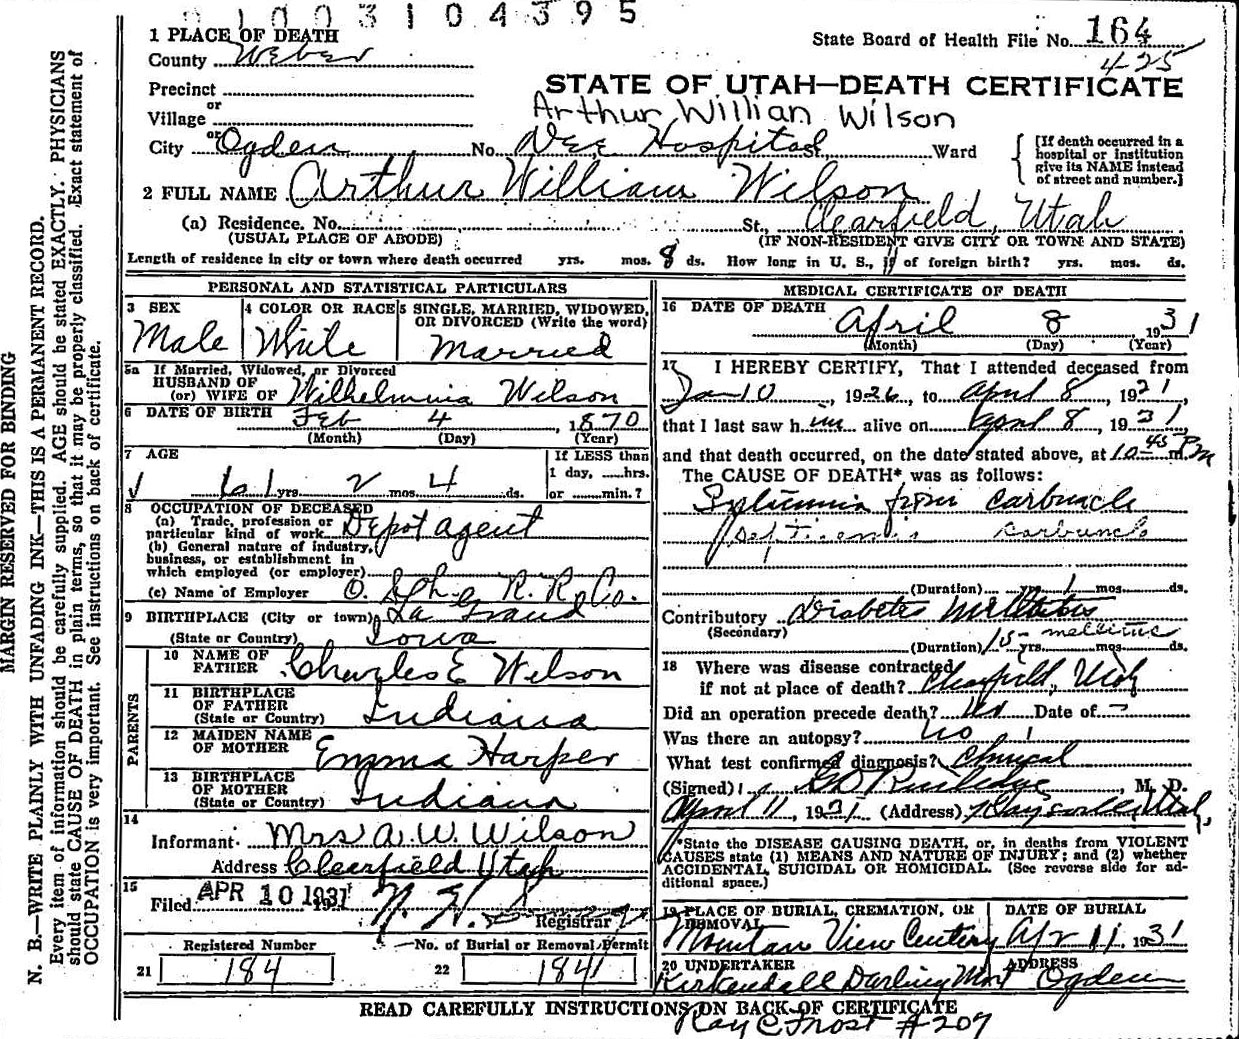 01003104395
1 PLACE OF DEATH
State Board of Health File No. 164
County Weber
425
Precinct
STATE OF UTAH—DEATH CERTIFICATE
or
Village
Arthur Willian Wilson
or
City Ogden No. Dee Hospital Ward
[If death occurred in a hospital or institution give its NAME instead of street and number.]
2 FULL NAME Arthur William Wilson
(a) Residence. No. St., Clearfield, Utah
(USUAL PLACE OF ABODE) (IF NON-RESIDENT GIVE CITY OR TOWN AND STATE)
Length of residence in city or town where death occurred yrs. mos. 8 ds. How long in U. S., if of foreign birth? yrs. mos. ds.
PERSONAL AND STATISTICAL PARTICULARS
3 SEX
Male
4 COLOR OR RACE
White
5 SINGLE, MARRIED, WIDOWED, OR DIVORCED (Write the word)
Married
5a If Married, Widowed, or Divorced
HUSBAND OF
(or) WIFE OF Wilhelmina Wilson
6 DATE OF BIRTH Feb 4, 1870
(Month) (Day) (Year)
7 AGE
61 yrs. 2 mos. 4 ds.
If LESS than
1 day, hrs.
or min.?
8 OCCUPATION OF DECEASED
(a) Trade, profession or
particular kind of work Depot agent
(b) General nature of industry,
business, or establishment in
which employed (or employer)
(c) Name of Employer O. S. R. R. Co.
9 BIRTHPLACE (City or town) La Grand
(State or Country) Iowa
PARENTS
10 NAME OF
FATHER Charles E Wilson
11 BIRTHPLACE
OF FATHER
(State or Country) Indiana
12 MAIDEN NAME
OF MOTHER Emma Harper
13 BIRTHPLACE
OF MOTHER
(State or Country) Indiana
14
Informant Mrs A. W. Wilson
Address Clearfield Utah
15
Filed APR 10 1931
Registrar
Registered Number
21 184
No. of Burial or Removal Permit
22 1841
MEDICAL CERTIFICATE OF DEATH
16 DATE OF DEATH
April 8 1931
(Month) (Day) (Year)
17 I HEREBY CERTIFY, That I attended deceased from
Jan 10, 1926, to April 8, 1931,
that I last saw him alive on April 8, 1931
and that death occurred, on the date stated above, at 10-45 P.m.
The CAUSE OF DEATH* was as follows:
from Carbuncle
Septicemia carbuncle
(Duration) yrs. 1 mos. ds.
Contributory Diabetes Mellitus
(Secondary) mellitus
(Duration) 15 yrs. mos. ds.
18 Where was disease contracted
if not at place of death? Clearfield, Utah
Did an operation precede death? No Date of
Was there an autopsy? no
What test confirmed diagnosis? Clinical
(Signed) Rutledge, M. D.
April 11, 1931 (Address) Kaysville Utah.
*State the DISEASE CAUSING DEATH, or, in deaths from VIOLENT
CAUSES state (1) MEANS AND NATURE OF INJURY; and (2) whether
ACCIDENTAL, SUICIDAL OR HOMICIDAL. (See reverse side for ad-
ditional space.)
19 PLACE OF BURIAL, CREMATION, OR
REMOVAL
Mountain View
DATE OF BURIAL
Apr 11, 1931
20 UNDERTAKER
Kirkendall Darling Mort
ADDRESS
Ogden
READ CAREFULLY INSTRUCTIONS ON BACK OF CERTIFICATE
Ray C Frost #207
MARGIN RESERVED FOR BINDING
N. B.—WRITE PLAINLY WITH UNFADING INK—THIS IS A PERMANENT RECORD.
Every item of information should be carefully supplied. AGE should be stated EXACTLY. PHYSICIANS
should state CAUSE OF DEATH in plain terms, so that it may be properly classified. Exact statement of
OCCUPATION is very important. See instructions on back of certificate.